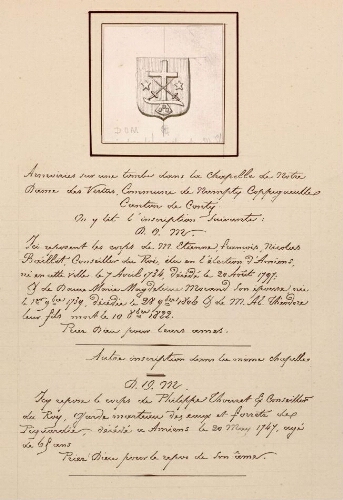 D.O.M
Armoiries sur une tombe dans la Chapelle de Notre
Dame des Vertus, Commune de Nampty Coppegueulle
Canton de Conty
On y lit l'inscription suivante :
D. O. M.
Ici reposent les corps de M. Etienne, François, Nicolas
Baillet, Conseiller du Roi, élu en l'élection d'Amiens,
né en cette ville le 7 Avril 1724, décédé le 20 Août 1797.
& de Dame Marie Magdeleine Morand son épouse née
le 1er 9bre 1759, décédée le 28 9bre 1806 & de M. Théodore
leur fils mort le 10 8bre 1822.
Priez Dieu pour leurs ames.
Autre inscription dans la même chapelle
D. O. M.
Icy repose le corps de Philippe Thouret Conseiller
du Roy, Garde marteau des eaux et forrêts de
Picardie, décédé a Amiens le 20 May 1747, agé
de 65 ans
Priez Dieu pour le repos de son âme.